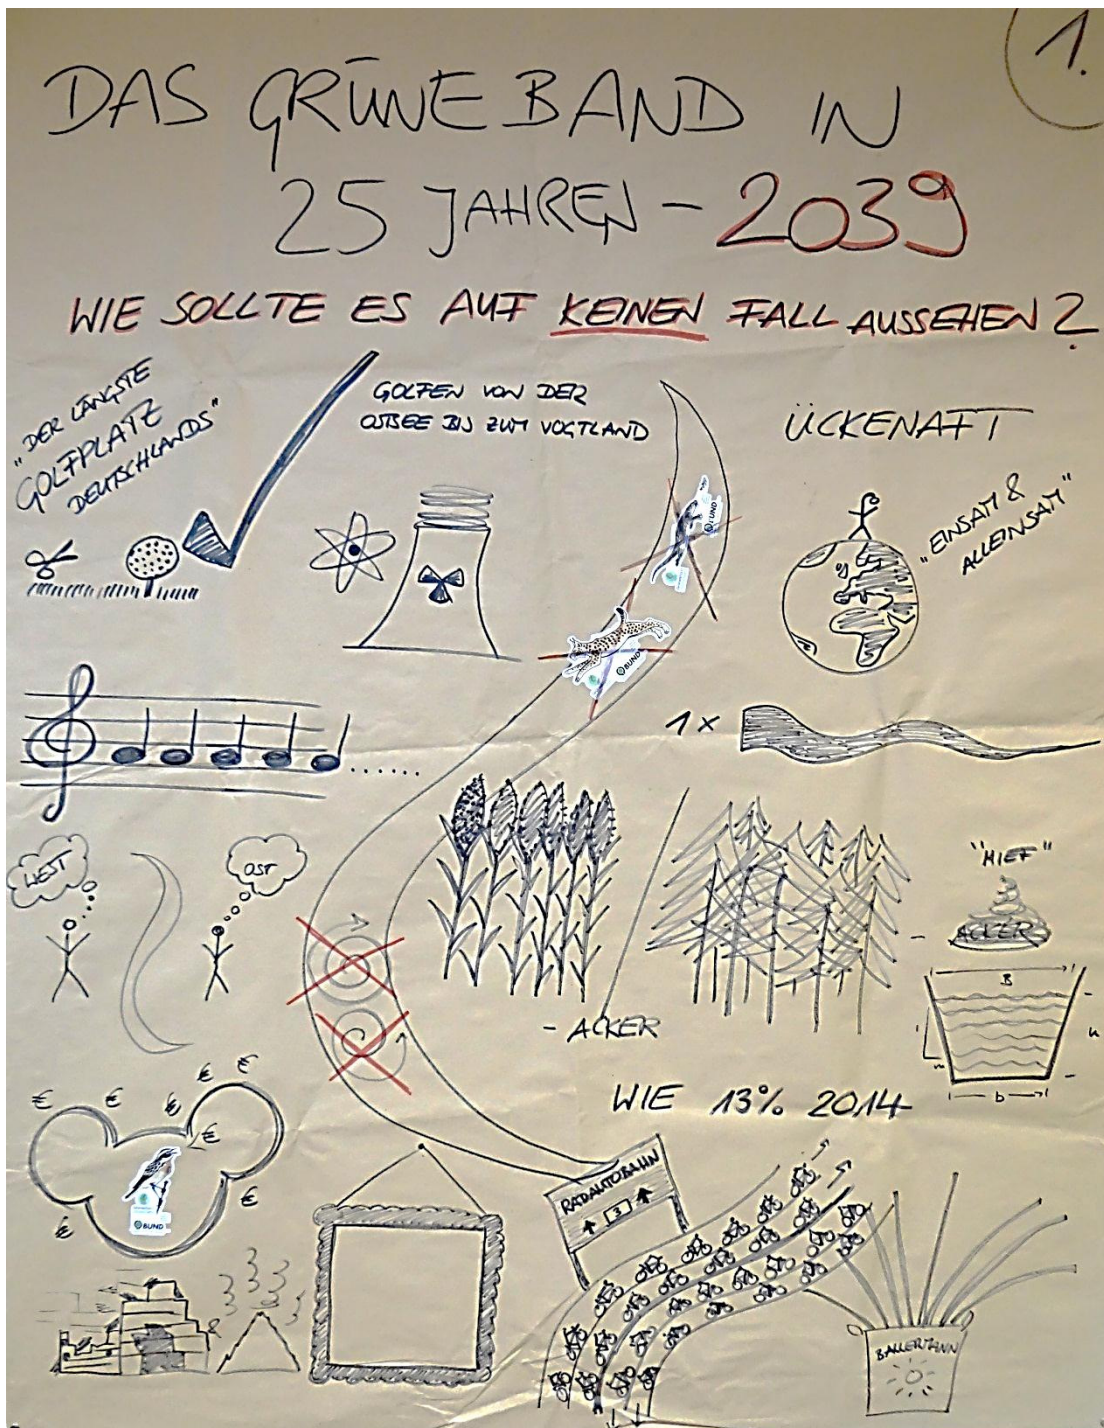 1.
DAS GRÜNE BAND IN
25 JAHREN - 2039
WIE SOLLTE ES AUF KEINEN FALL AUSSEHEN?
"DER LÄNGSTE
GOLFPLATZ
DEUTSCHLANDS"
GOLFEN VON DER
OSTSEE BIS ZUM VOGTLAND
ÜCKENAFT
"EINSAM &
ALLEINSAM"
BUND
BUND
1x
WEST
OST
"MIEF"
- ACKER
B
h
b
- ACKER
WIE 13% 2014
€ € € € € € € €
BUND
RADAUTOBAHN
3
BALLERMANN